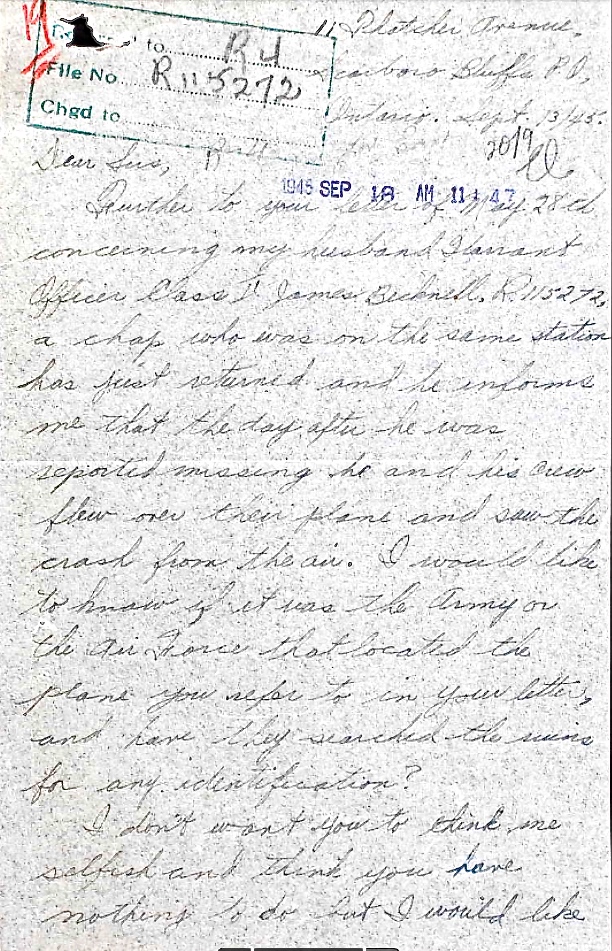 to R4
File No. R115272
Chgd to
11 Fletcher Avenue,
Scarboro Bluffs P.O.,
Ontario. Sept. 13/45.
2019
Dear Sirs,
1945 SEP 18 AM 11 47
Further to your letter of May 28th
concerning my husband Warrant
Officer Class I James Becknell. R.115272,
a chap who was on the same station
has just returned and he informs
me that the day after he was
reported missing he and his crew
flew over their plane and saw the
crash from the air. I would like
to know if it was the Army or
the Air Force that located the
plane you refer to in your letter,
and have they searched the ruins
for any identification?
I don't want you to think me
selfish and think you have
nothing to do but I would like